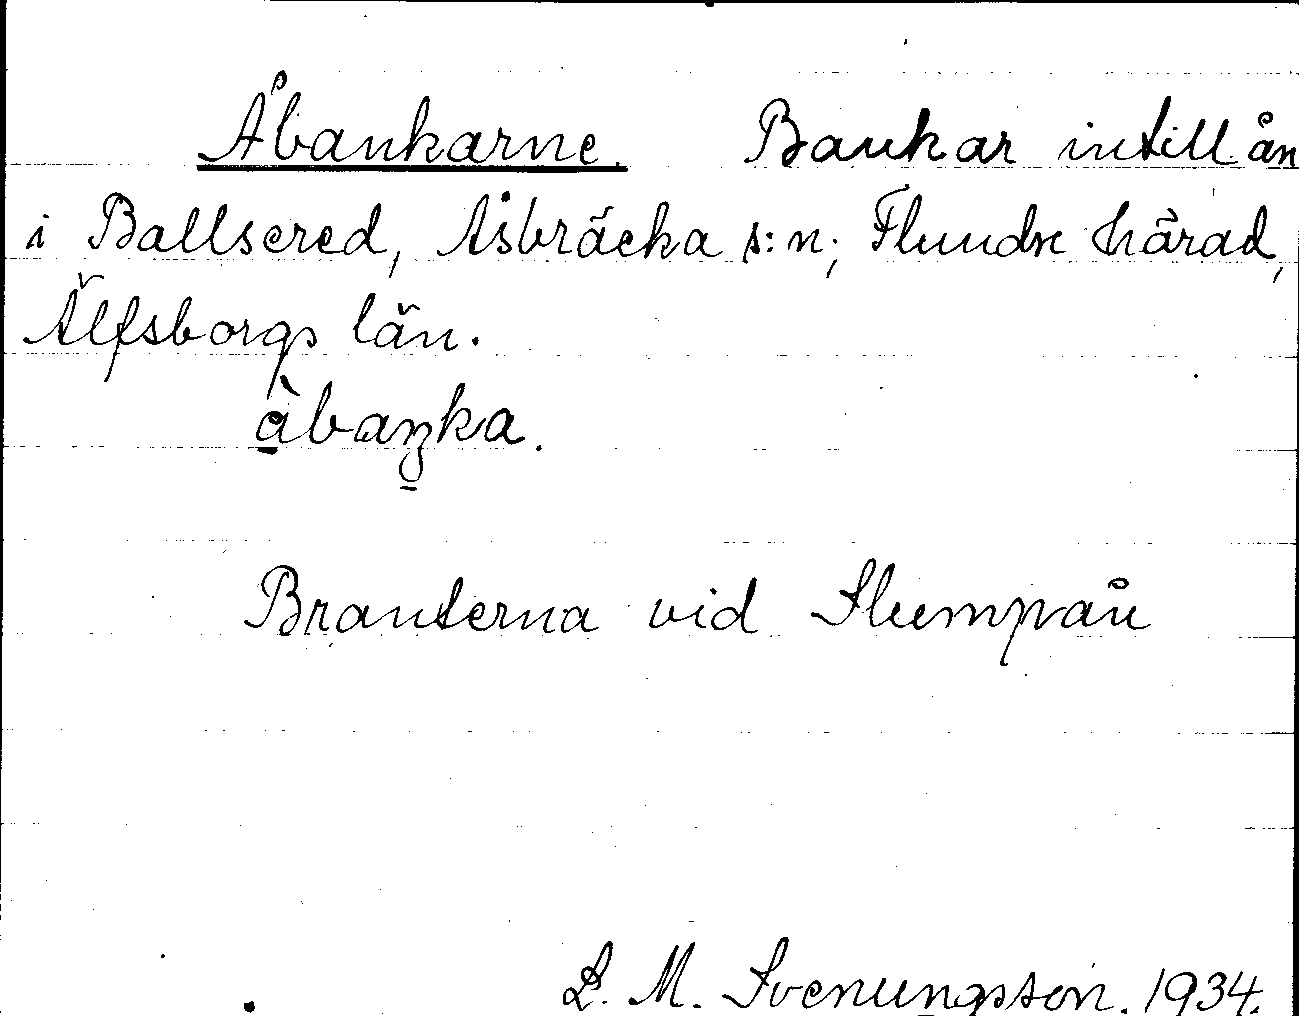 Åbankarne. Bankar intill ån
i Ballsered, Åsbräcka s:n, Flundre härad,
Älfsborgs län.
å̀baŋka.
Branterna vid Slumpån
L. M. Svenungsson. 1934.